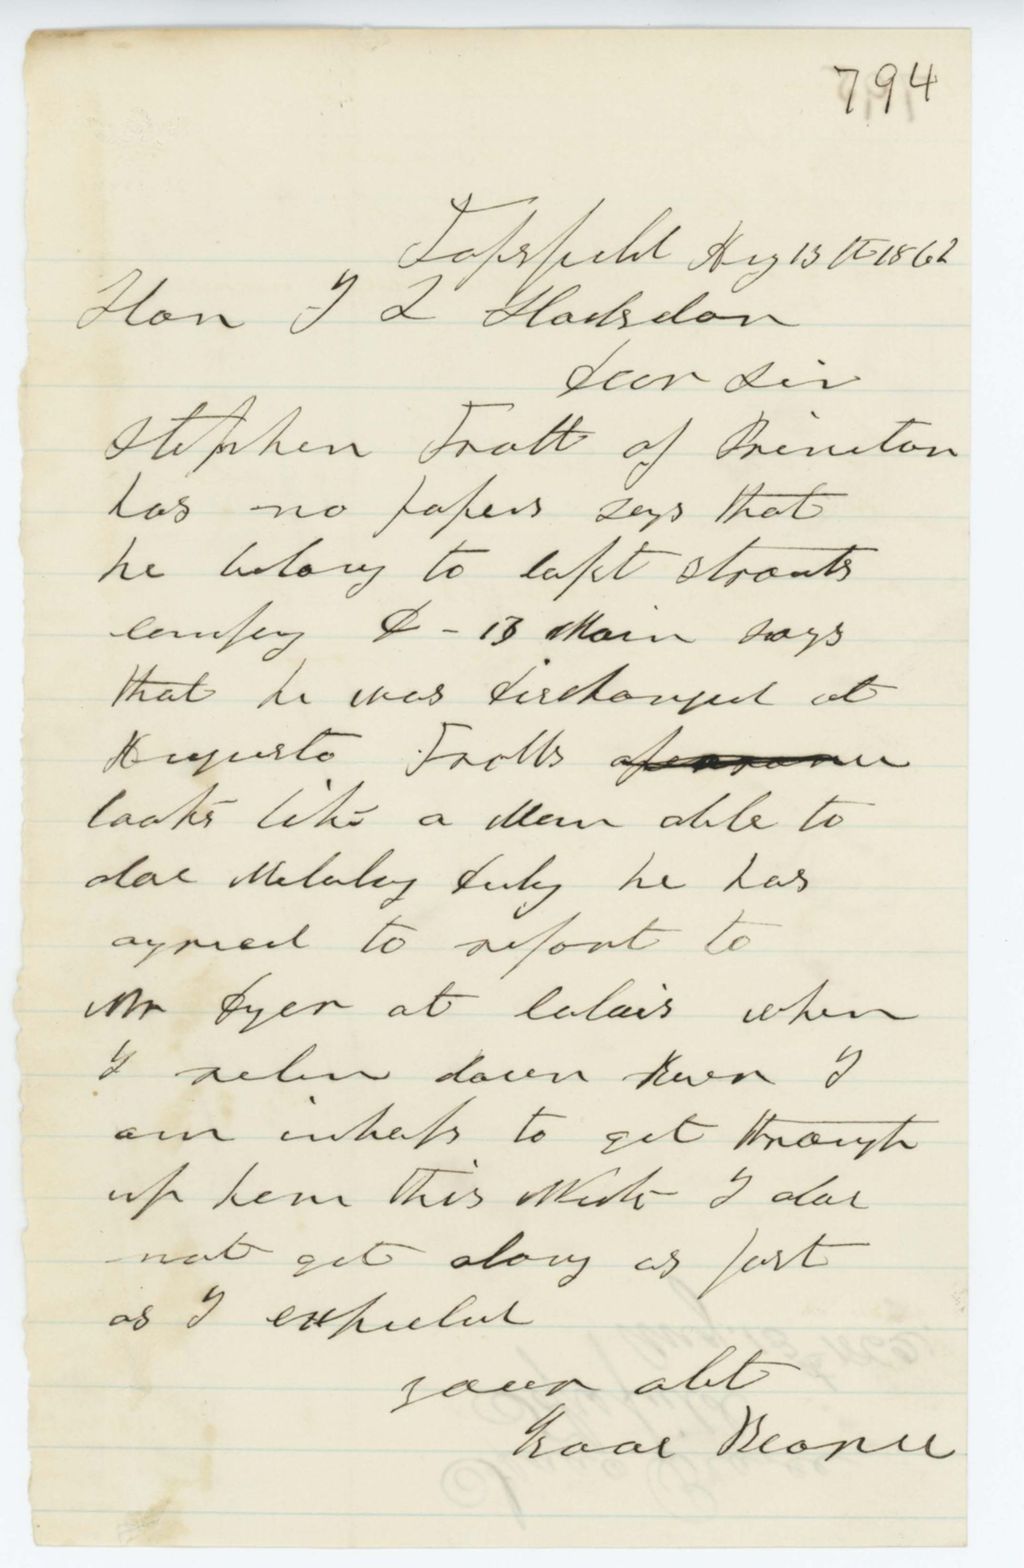 794
Topsfield Aug 13th 1862
Hon J L Hodsdon
Dear Sir
Stephen Trott of Princton
has no papers says that
he belong to Capt Strouts
compey D - 13 Main says
that he was discharged at
Augusta Trotts
looks like a Man able to
doe Militay duty he has
agreed to report to
Mr Dyer at Calais when
I return down River I
am in hops to get through
up here this Week I doe
not get along as fast
as I expected
your obt
Isaac